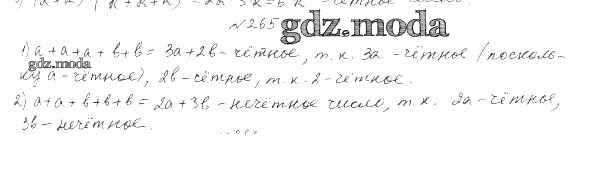 №265
gdz.moda
1) a + a + a + b + b = 3a + 2b - чётное, т. к. 3a - чётное (посколь-
gdz.moda
ку a - чётное), 2b - чётное, т. к. 2 - чётное.
2) a + a + b + b + b = 2a + 3b - нечётное число, т. к. 2a - чётное,
3b - нечётное.